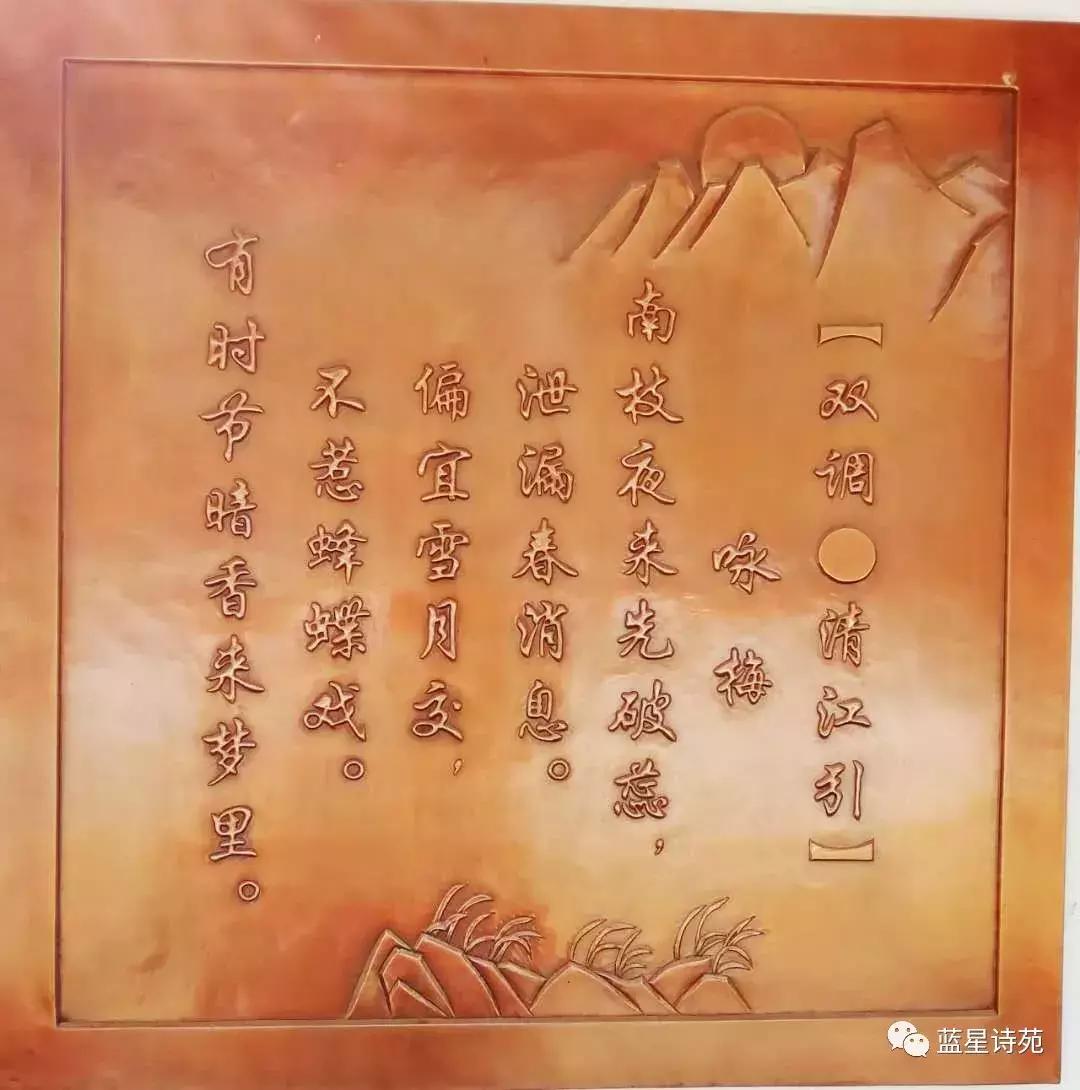 【双调●清江引】
咏梅
南枝夜来先破蕊，
泄漏春消息。
偏宜雪月交，
不惹蜂蝶戏。
有时节暗香来梦里。
蓝星诗苑